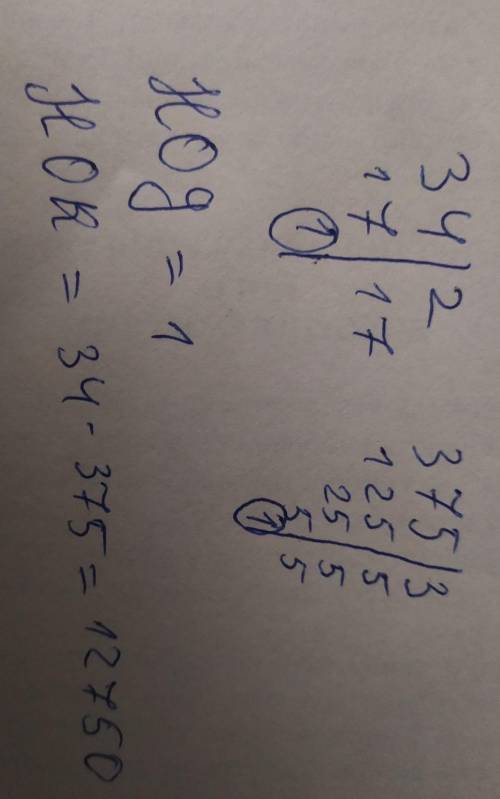 34 | 2 375 | 3
17 | 17 125 | 5
1 25 | 5
5 | 5
1
НОД = 1
НОК = 34 · 375 = 12750